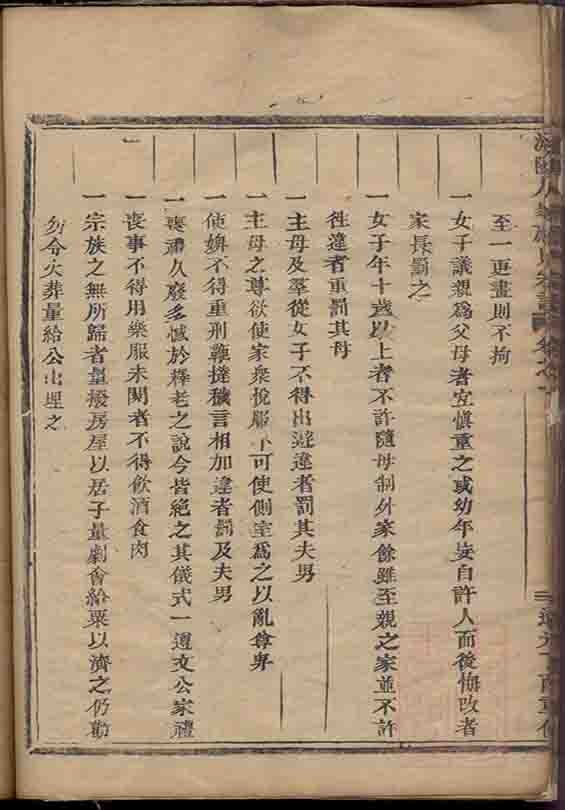 至一更盡則不拘
一女子議親爲父母者宜愼重之或幼年妄自許人而後悔改者
家長罰之
一女子年十歲以上者不許隨母制外家餘雖至親之家並不許
徃違者重罰其母
一主母及羣從女子不得出遊違者罰其夫男
一主母之尊欲使家衆悅服不可使側室爲之以亂尊卑
一使婢不得重刑鞭撻穢言相加違者罰及夫男
一喪禮久廢多惑於釋老之說今皆絕之其儀式一遵文公家禮
一喪事不得用樂服未闋者不得飮酒食肉
一宗族之無所歸者量撥房屋以居子量劇會給粟以濟之仍勸
勿令火葬量給公出埋之